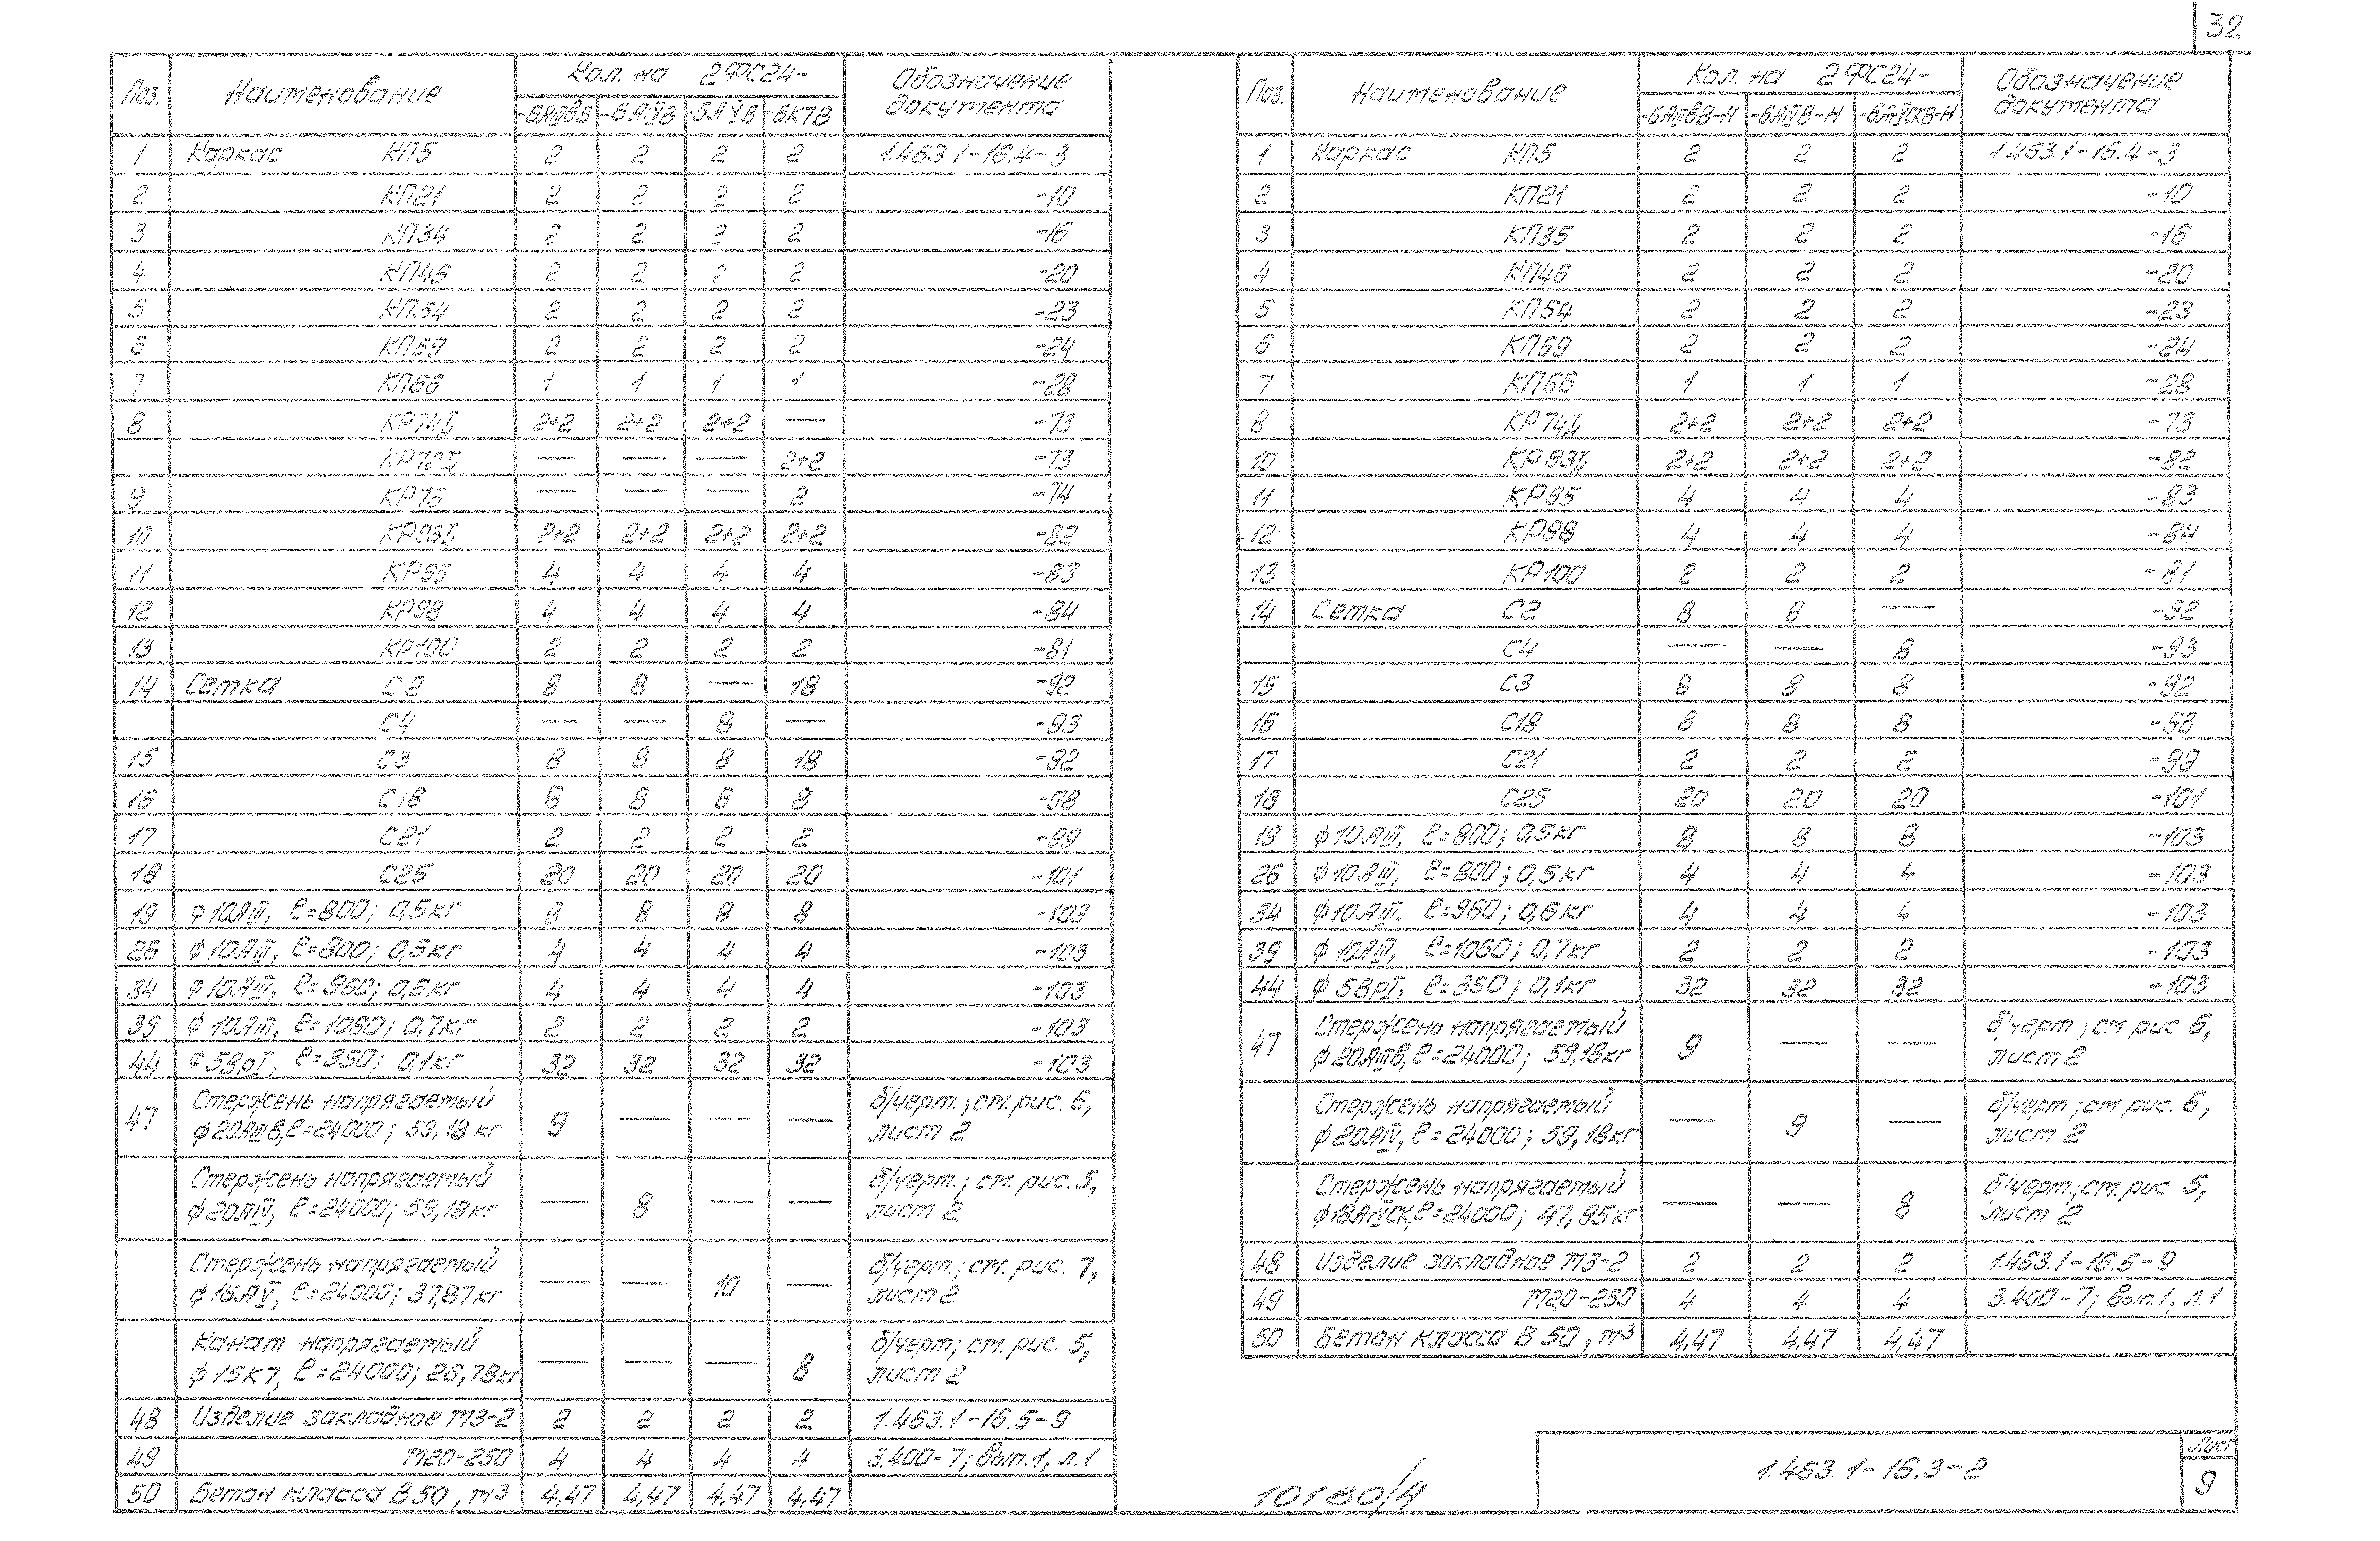 32
Поз. Наименование Кол. на 2ФС24- Обозначение документа
-6АIIIвВ -6АIVВ -6АVВ -6К7В
1 Каркас КП5 2 2 2 2 1.463.1-16.4-3
2 КП21 2 2 2 2 -10
3 КП34 2 2 2 2 -16
4 КП45 2 2 2 2 -20
5 КП54 2 2 2 2 -23
6 КП59 2 2 2 2 -24
7 КП66 1 1 1 1 -28
8 2+2 2+2 2+2 — -73
— — — 2+2 -73
9 — — — 2 -74
10 2+2 2+2 2+2 2+2 -82
11 КР95 4 4 4 4 -83
12 КР98 4 4 4 4 -84
13 КР100 2 2 2 2 -81
14 Сетка С2 8 8 — 18 -92
С4 — — 8 — -93
15 С3 8 8 8 18 -92
16 С18 8 8 8 8 -98
17 С21 2 2 2 2 -99
18 С25 20 20 20 20 -101
19 ф10АIII, ℓ=800; 0,5кг 8 8 8 8 -103
26 ф10АIII, ℓ=800; 0,5кг 4 4 4 4 -103
34 ф10АIII, ℓ=960; 0,6кг 4 4 4 4 -103
39 ф10АIII, ℓ=1060; 0,7кг 2 2 2 2 -103
44 ф5ВрI, ℓ=350; 0,1кг 32 32 32 32 -103
47 Стержень напрягаемый 9 — — — б/черт.; см. рис. 6,
ф20АIIIв, ℓ=24000; 59,18кг лист 2
Стержень напрягаемый — 8 — — б/черт.; см. рис. 5,
ф20АIV, ℓ=24000; 59,18кг лист 2
Стержень напрягаемый — — 10 — б/черт.; см. рис. 7,
ф16АV, ℓ=24000; 37,87кг лист 2
Канат напрягаемый — — — 8 б/черт; см. рис. 5,
ф15К7, ℓ=24000; 26,78кг лист 2
48 Изделие закладное М3-2 2 2 2 2 1.463.1-16.5-9
49 М20-250 4 4 4 4 3.400-7; вып.1, л.1
50 Бетон класса В50, м3 4,47 4,47 4,47 4,47
Поз. Наименование Кол. на 2ФС24- Обозначение документа
-6АIIIвВ-Н -6АIVВ-Н -6АтVСКВ-Н
1 Каркас КП5 2 2 2 1.463.1-16.4-3
2 КП21 2 2 2 -10
3 КП35 2 2 2 -16
4 КП46 2 2 2 -20
5 КП54 2 2 2 -23
6 КП59 2 2 2 -24
7 КП66 1 1 1 -28
8 2+2 2+2 2+2 -73
10 2+2 2+2 2+2 -82
11 КР95 4 4 4 -83
12 КР98 4 4 4 -84
13 КР100 2 2 2 -81
14 Сетка С2 8 8 — -92
С4 — — 8 -93
15 С3 8 8 8 -92
16 С18 8 8 8 -98
17 С21 2 2 2 -99
18 С25 20 20 20 -101
19 ф10АIII, ℓ=800; 0,5кг 8 8 8 -103
26 ф10АIII, ℓ=800; 0,5кг 4 4 4 -103
34 ф10АIII, ℓ=960; 0,6кг 4 4 4 -103
39 ф10АIII, ℓ=1060; 0,7кг 2 2 2 -103
44 ф5ВрI, ℓ=350; 0,1кг 32 32 32 -103
47 Стержень напрягаемый 9 — — б/черт; см рис 6,
ф20АIIIв, ℓ=24000; 59,18кг лист 2
Стержень напрягаемый — 9 — б/черт; см рис. 6,
ф20АIV, ℓ=24000; 59,18кг лист 2
Стержень напрягаемый — — 8 б/черт.; см. рис 5,
ф18АтVСК, ℓ=24000; 47,95кг лист 2
48 Изделие закладное М3-2 2 2 2 1.463.1-16.5-9
49 М20-250 4 4 4 3.400-7; вып.1, л.1
50 Бетон класса В50, м3 4,47 4,47 4,47
10180/4
1.463.1-16.3-2
Лист
9